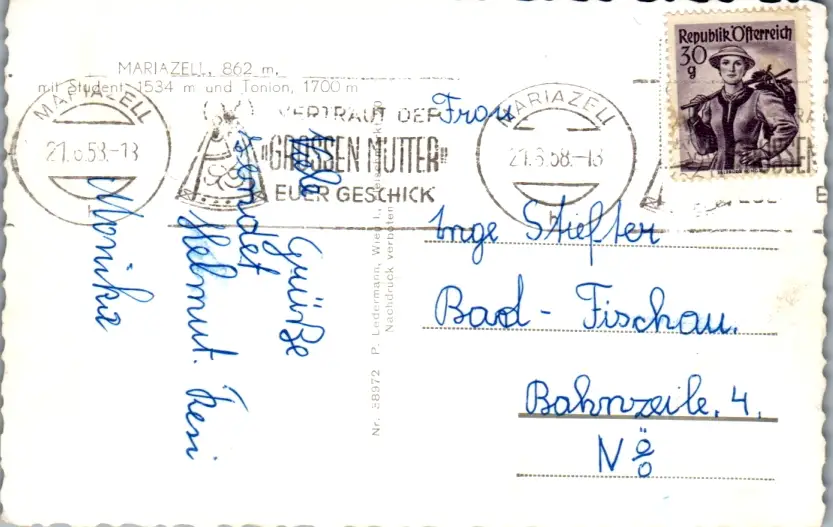 MARIAZELL, 862 m,
mit Student 1534 m und Tonion, 1700 m
MARIAZELL
21.6.58.-13
h
VERTRAUT DER
"GROSSEN MUTTER"
EUER GESCHICK
MARIAZELL
21.6.58.-13
h
Republik Österreich
30
g
Frau
Inge Stiefter
Bad - Fischau.
Bahnzeile. 4.
NÖ
Viele Grüße
sendet
Helmut. Resi
Monika
Nr. 38972 P. Ledermann, Wien I,
Nachdruck verboten